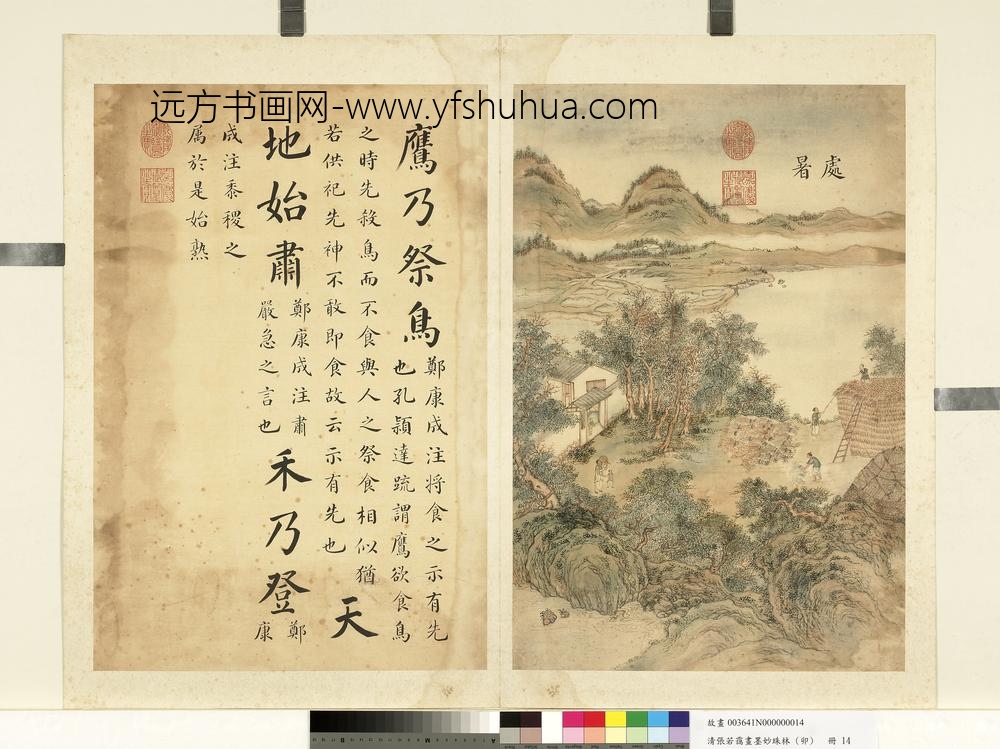 远方书画网-www.yfshuhua.com
處
暑
鷹乃祭鳥
鄭康成注將食之示有先
也孔穎達疏謂鷹欲食鳥
之時先殺鳥而不食與人之祭食相似猶
若供祀先神不敢即食故云示有先也
天
地始肅
鄭康成注肅
嚴急之言也
禾乃登
鄭
康
成注黍稷之
属於是始熟
故畫 003641N000000014
清張若靄畫墨妙珠林（卯） 冊 14